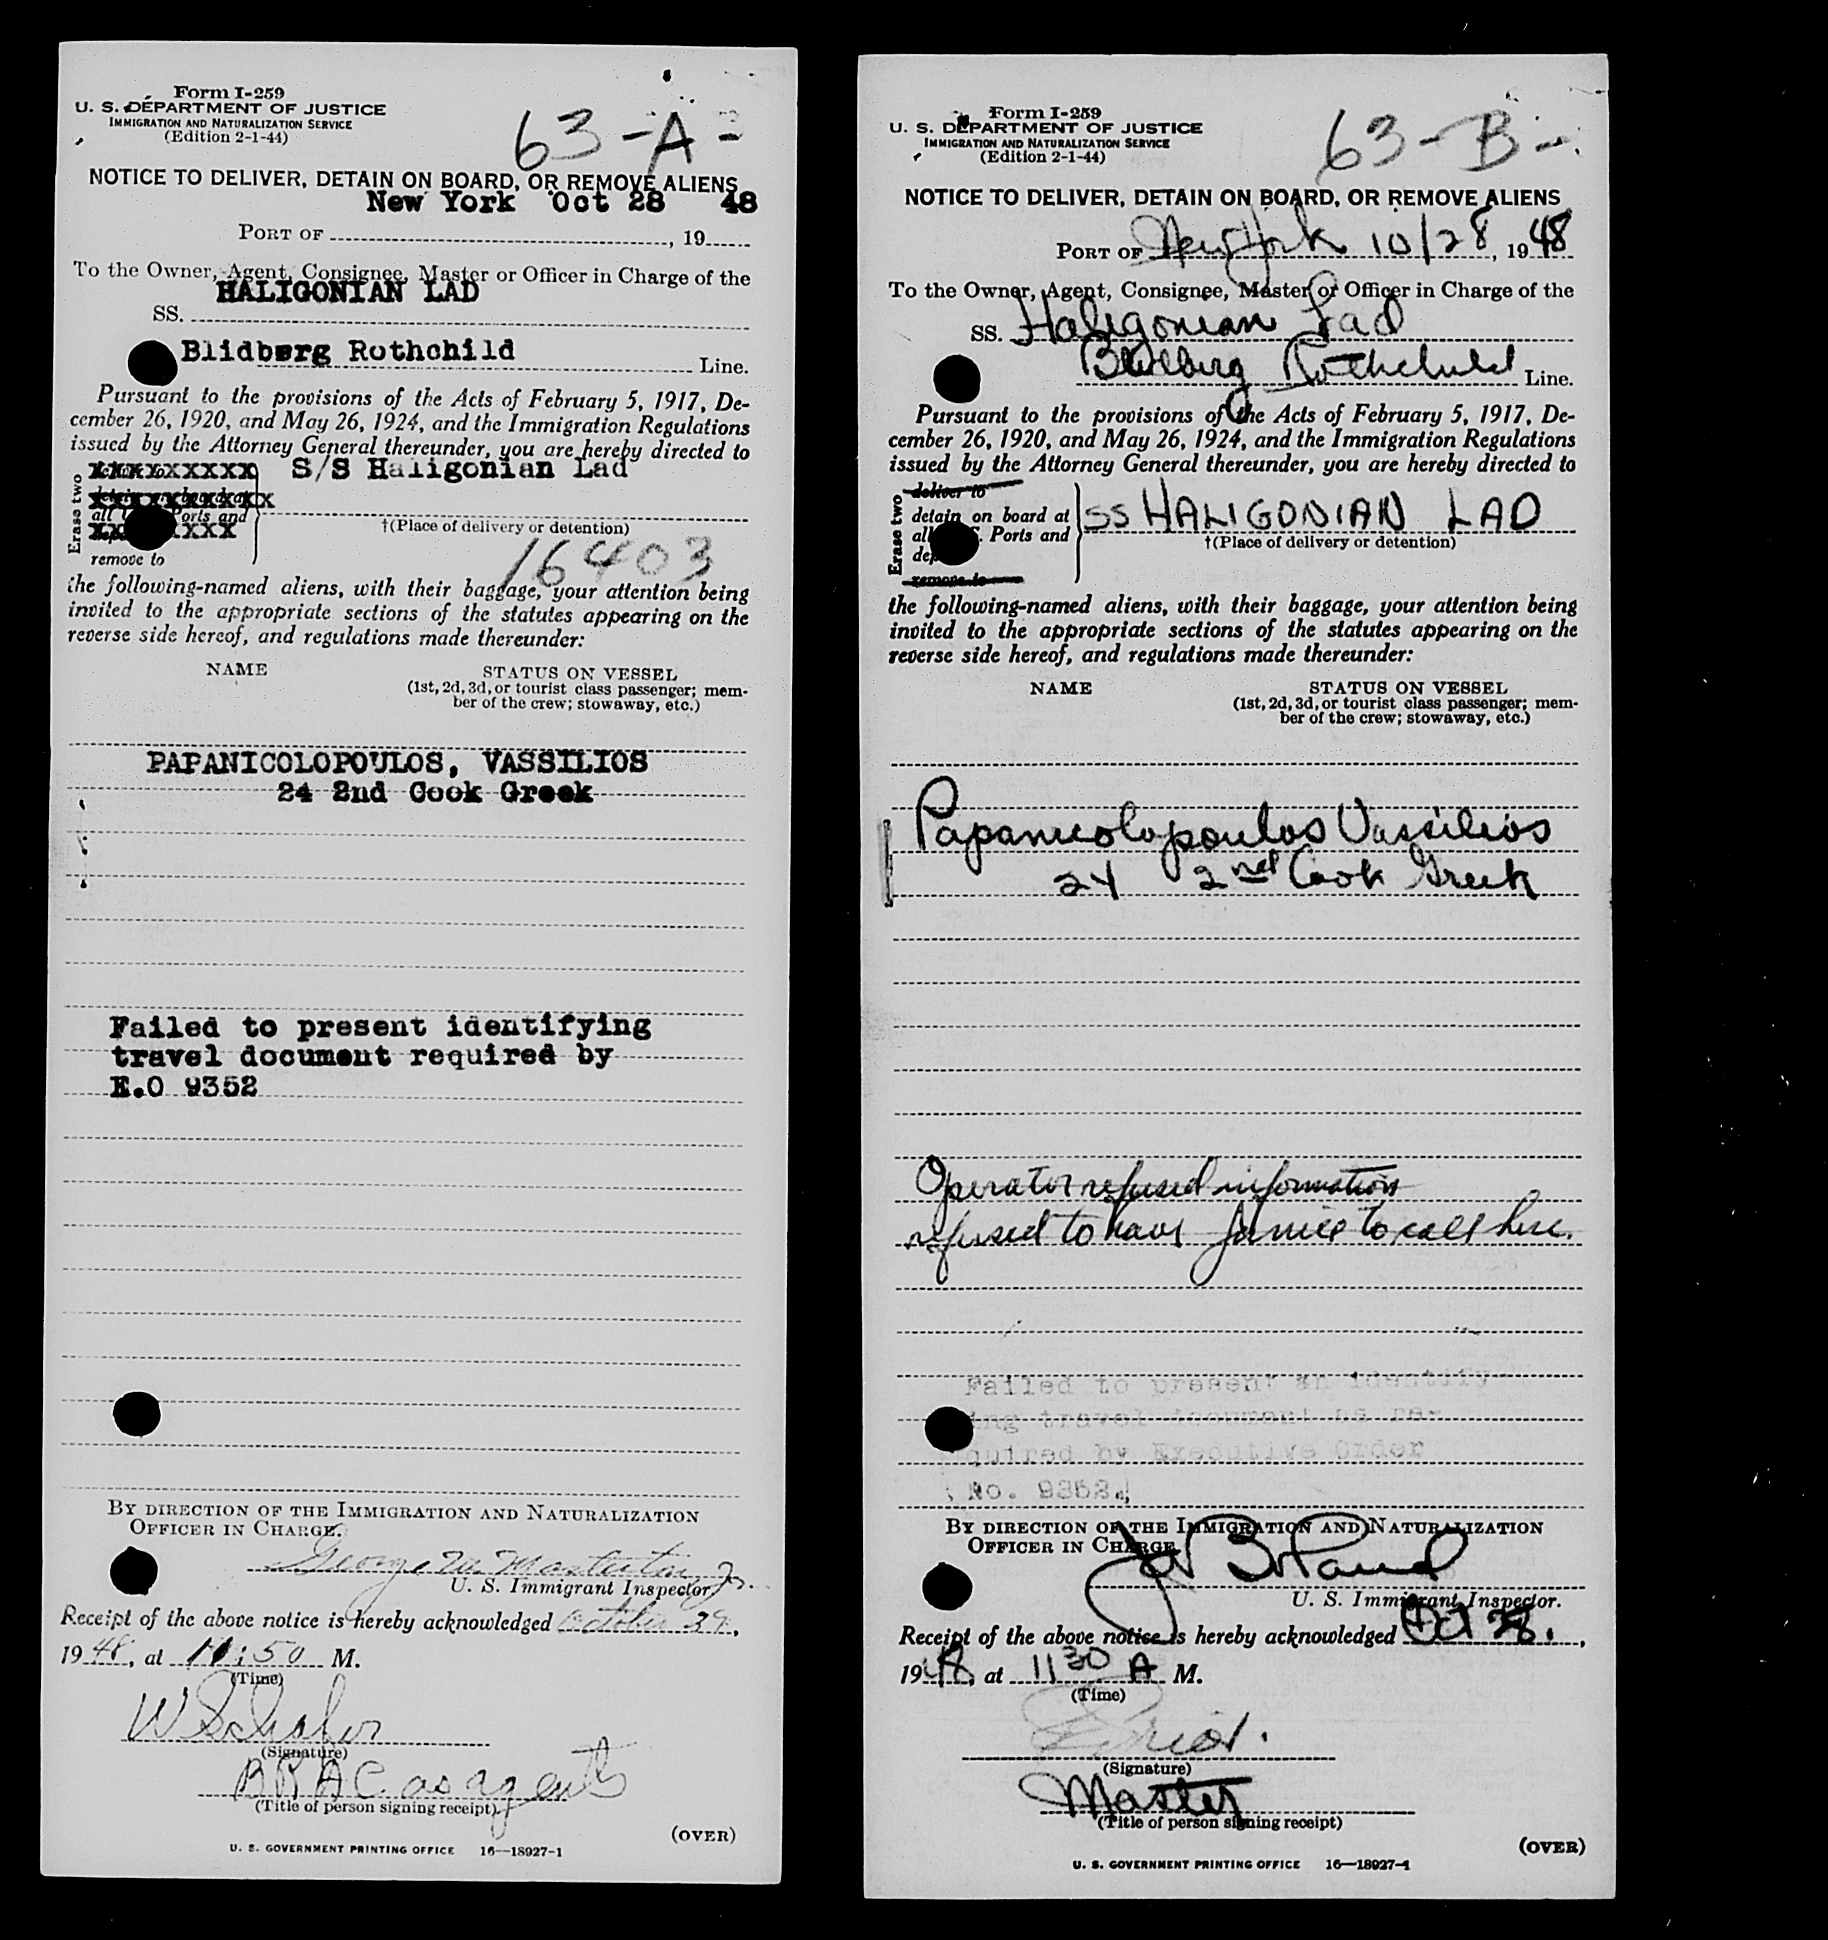 Form I-259
U. S. DEPARTMENT OF JUSTICE
IMMIGRATION AND NATURALIZATION SERVICE
(Edition 2-1-44)
63-A-
NOTICE TO DELIVER, DETAIN ON BOARD, OR REMOVE ALIENS
New York Oct 28 48
PORT OF , 19
To the Owner, Agent, Consignee, Master or Officer in Charge of the
HALIGONIAN LAD
SS.
Blidberg Rothchild
Line.
Pursuant to the provisions of the Acts of February 5, 1917, De-
cember 26, 1920, and May 26, 1924, and the Immigration Regulations
issued by the Attorney General thereunder, you are hereby directed to
XXXXXXXXX S/S Haligonian Lad
Erase two
all Ports and
†(Place of delivery or detention)
remove to
16403
the following-named aliens, with their baggage, your attention being
invited to the appropriate sections of the statutes appearing on the
reverse side hereof, and regulations made thereunder:
NAME STATUS ON VESSEL
(1st, 2d, 3d, or tourist class passenger; mem-
ber of the crew; stowaway, etc.)
PAPANICOLOPOULOS, VASSILIOS
24 2nd Cook Greek
Failed to present identifying
travel document required by
E.O 9352
BY DIRECTION OF THE IMMIGRATION AND NATURALIZATION
OFFICER IN CHARGE.
George M Masterton, Jr.
U. S. Immigrant Inspector.
Receipt of the above notice is hereby acknowledged October 29,
1948, at 11:50 M.
(Time)
W Schafer
(Signature)
BRAC as agents
(Title of person signing receipt)
(OVER)
U. S. GOVERNMENT PRINTING OFFICE 16—18927-1
Form I-259
U. S. DEPARTMENT OF JUSTICE
IMMIGRATION AND NATURALIZATION SERVICE
(Edition 2-1-44)
63-B-
NOTICE TO DELIVER, DETAIN ON BOARD, OR REMOVE ALIENS
PORT OF New York 10/28, 1948
To the Owner, Agent, Consignee, Master or Officer in Charge of the
SS. Haligonian Lad
Blidberg Rothchild Line.
Pursuant to the provisions of the Acts of February 5, 1917, De-
cember 26, 1920, and May 26, 1924, and the Immigration Regulations
issued by the Attorney General thereunder, you are hereby directed to
Erase two
deliver to
detain on board at SS HALIGONIAN LAD
all Ports and
†(Place of delivery or detention)
remove to
the following-named aliens, with their baggage, your attention being
invited to the appropriate sections of the statutes appearing on the
reverse side hereof, and regulations made thereunder:
NAME STATUS ON VESSEL
(1st, 2d, 3d, or tourist class passenger; mem-
ber of the crew; stowaway, etc.)
Papanicolopoulos Vassilios
24 2nd Cook Greek
Operator refused information
refused to have to call here.
Failed to present an identify-
ing travel document as re-
quired by Executive Order
No. 9352.
BY DIRECTION OF THE IMMIGRATION AND NATURALIZATION
OFFICER IN CHARGE
U. S. Immigrant Inspector.
Receipt of the above notice is hereby acknowledged Oct 28.,
1948, at 11 30 A M.
(Time)
(Signature)
Master
(Title of person signing receipt)
(OVER)
U. S. GOVERNMENT PRINTING OFFICE 16—18927-1